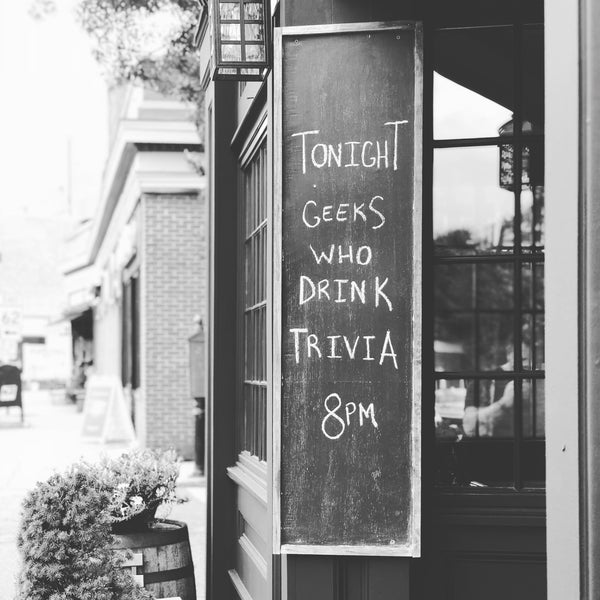 TONIGHT
GEEKS
WHO
DRINK
TRIVIA
8PM